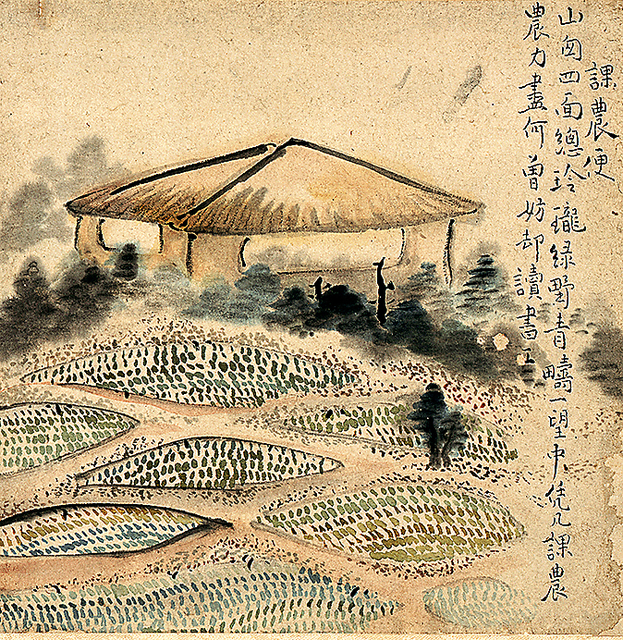 課農便
山囱四面總玲瓏緑野青疇一望中凭几課農
農力盡何曽妨却讀書工